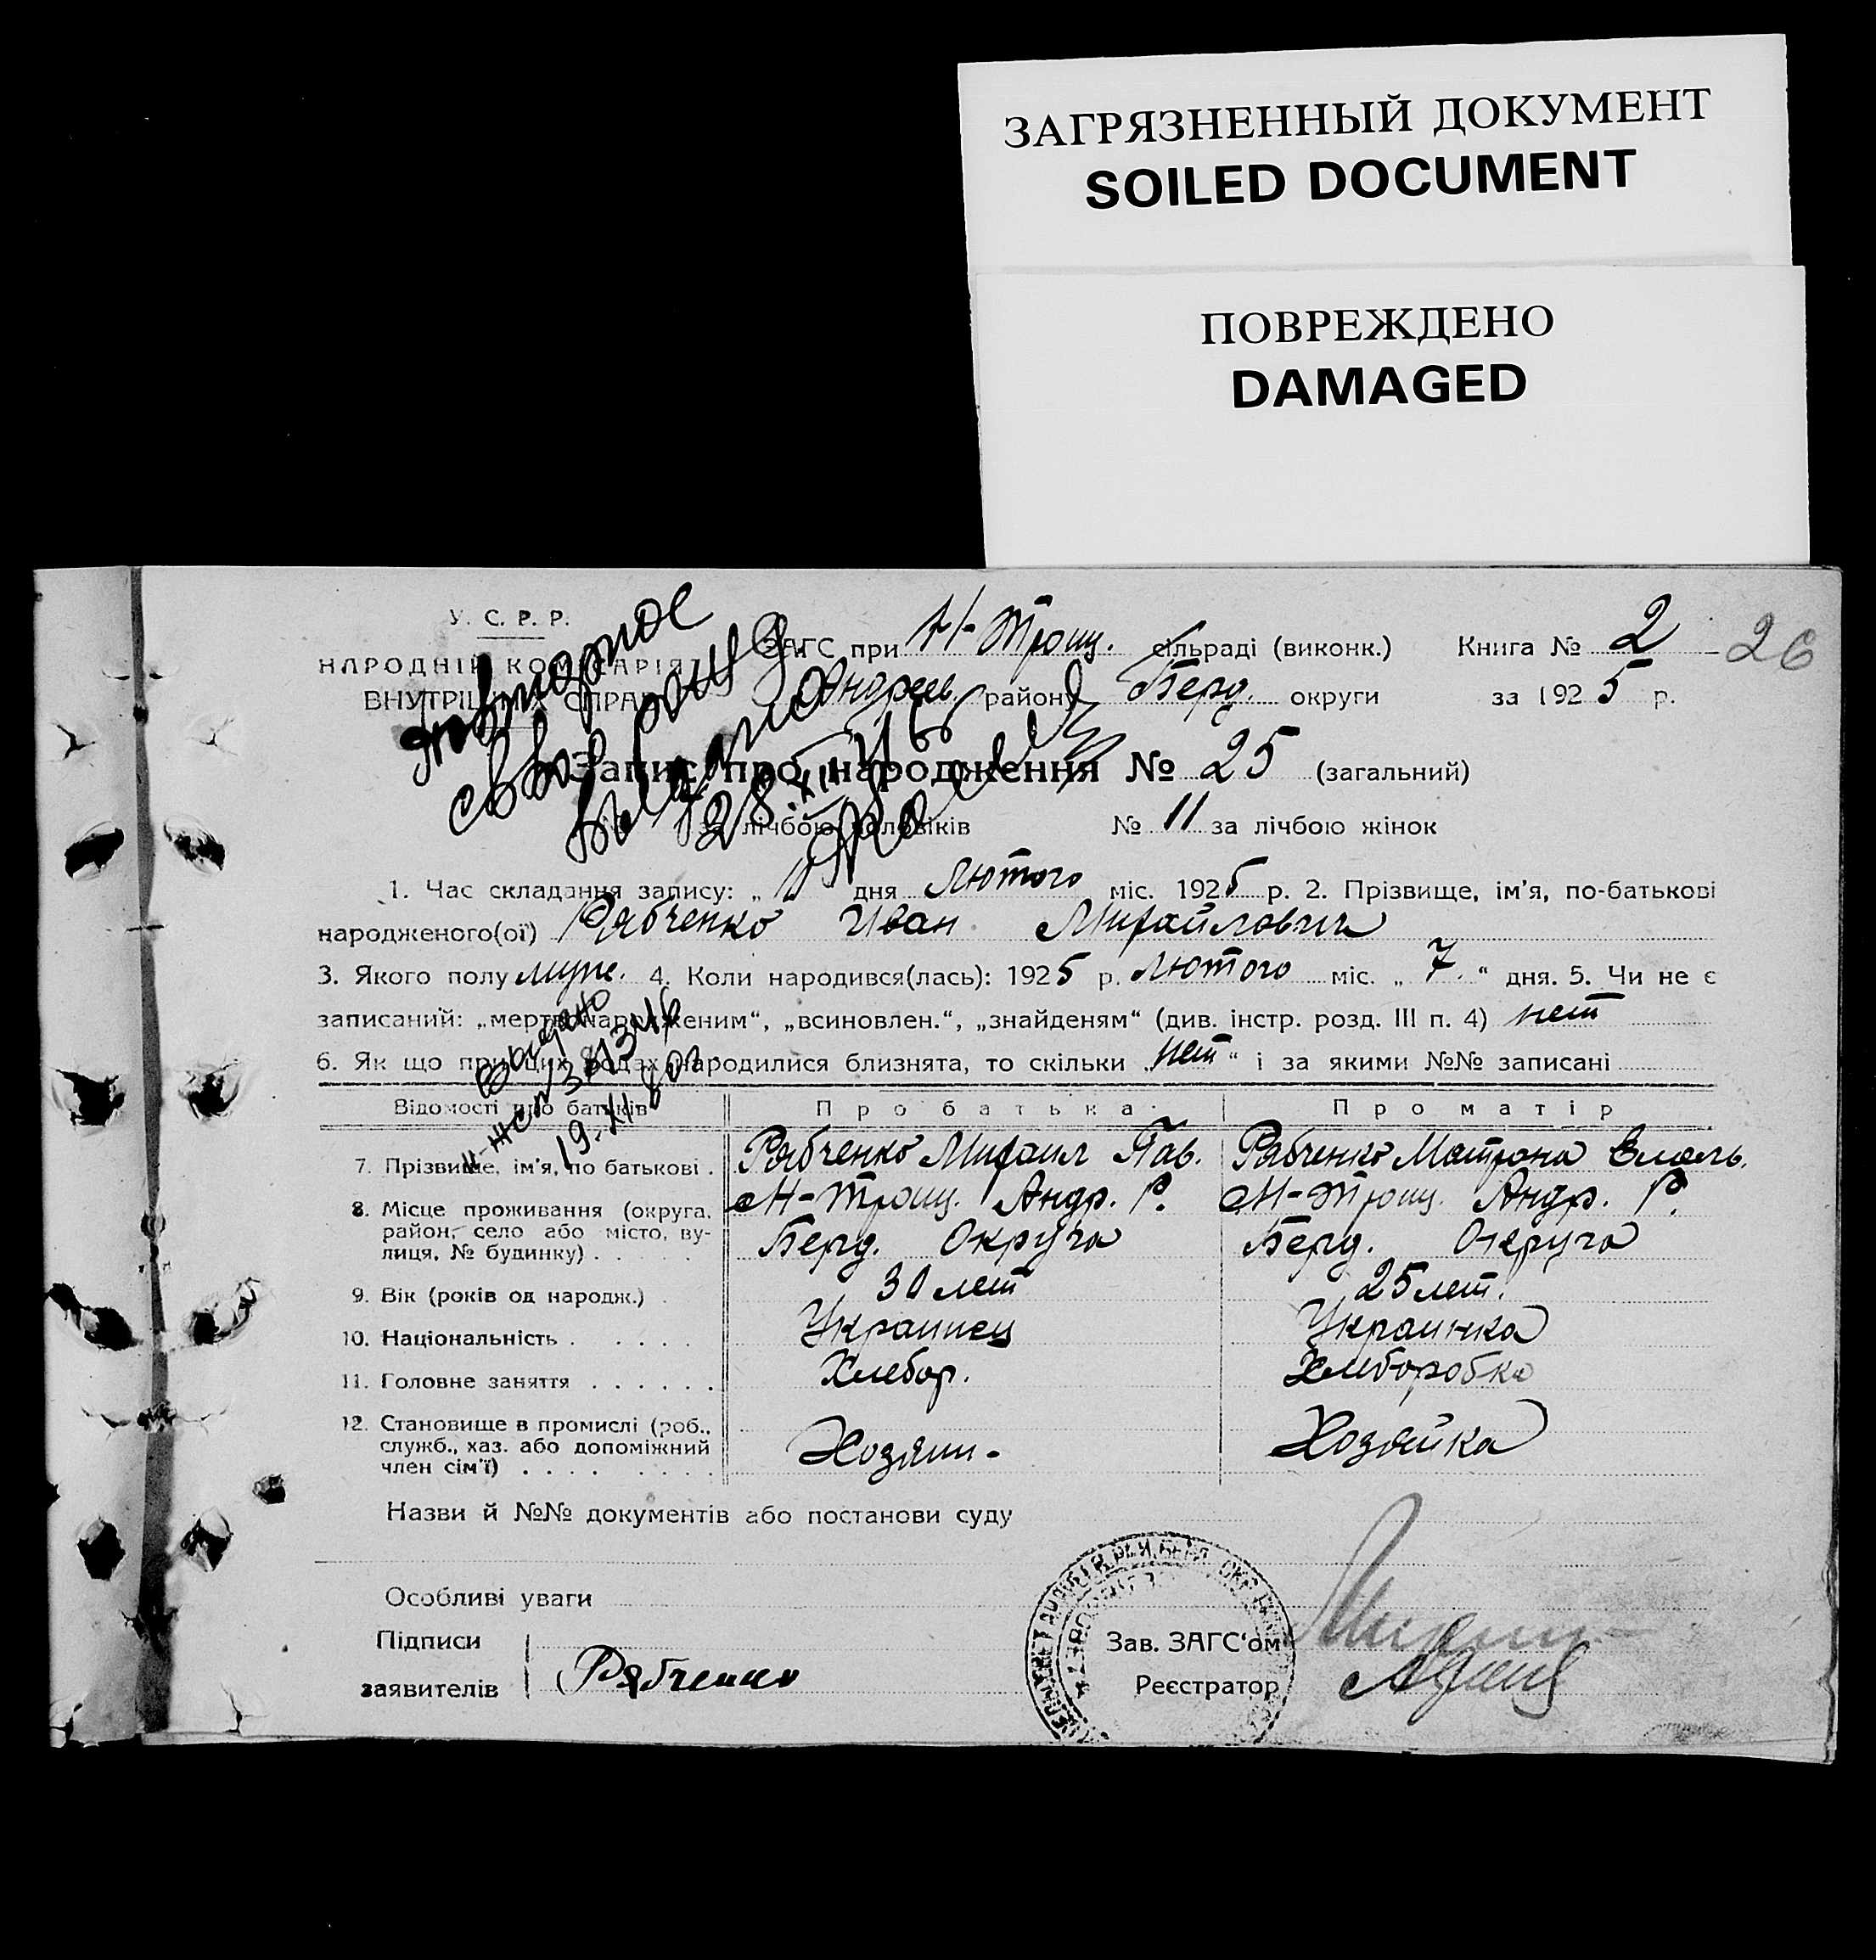 ЗАГРЯЗНЕННЫЙ ДОКУМЕНТ
SOILED DOCUMENT
ПОВРЕЖДЕНО
DAMAGED
У. С. Р. Р.
НАРОДНІЙ КОМІСАРІЯТ
ВНУТРІШНІХ СПРАВ
ЗАГС при Н-Троиц. сільраді (виконк.) Книга № 2 26
Андреев. району Берд. округи за 1925 р.
повторное
свид
выдано
28.XII
Запис про народження № 25 (загальний)
за лічбою чоловіків № 11 за лічбою жінок
1. Час складання запису: „ дня Лютого міс. 1925 р. 2. Прізвище, ім’я, по-батькові
народженого(ої) Рябченко Иван Михайлович
3. Якого полу муж. 4. Коли народився(лась): 1925 р. Лютого міс. „ 7. “ дня. 5. Чи не є
записаний: „мертвонародженим“, „всиновлен.“, „знайденям“ (див. інстр. розд. III п. 4) нет
6. Як що при цих родах народилися близнята, то скільки „нет“ і за якими №№ записані
Выдано
19.XI
Відомості про батьків Про батька Про матір
7. Прізвище, ім’я, по батькові . Рябченко Михаил Пав. Рябченко Матрона Емель.
8. Місце проживання (округа, Н-Троиц. Андр. Р. Н-Троиц. Андр. Р.
район, село або місто, ву-
лиця, № будинку) . Берд. Округа Берд. Округа
9. Вік (років од народж.) . 30 лет 25 лет.
10. Національність . . . . . Украинец Украинка
11. Головне заняття . . . . . . Хлебор. Хлеборобка
12. Становище в промислі (роб.,
служб., хаз. або допоміжний Хозяин. Хозяйка
член сім’ї) . . . .
Назви й №№ документів або постанови суду
Особливі уваги
Підписи
заявителів Рябченко
Зав. ЗАГС‘ом
Реєстратор